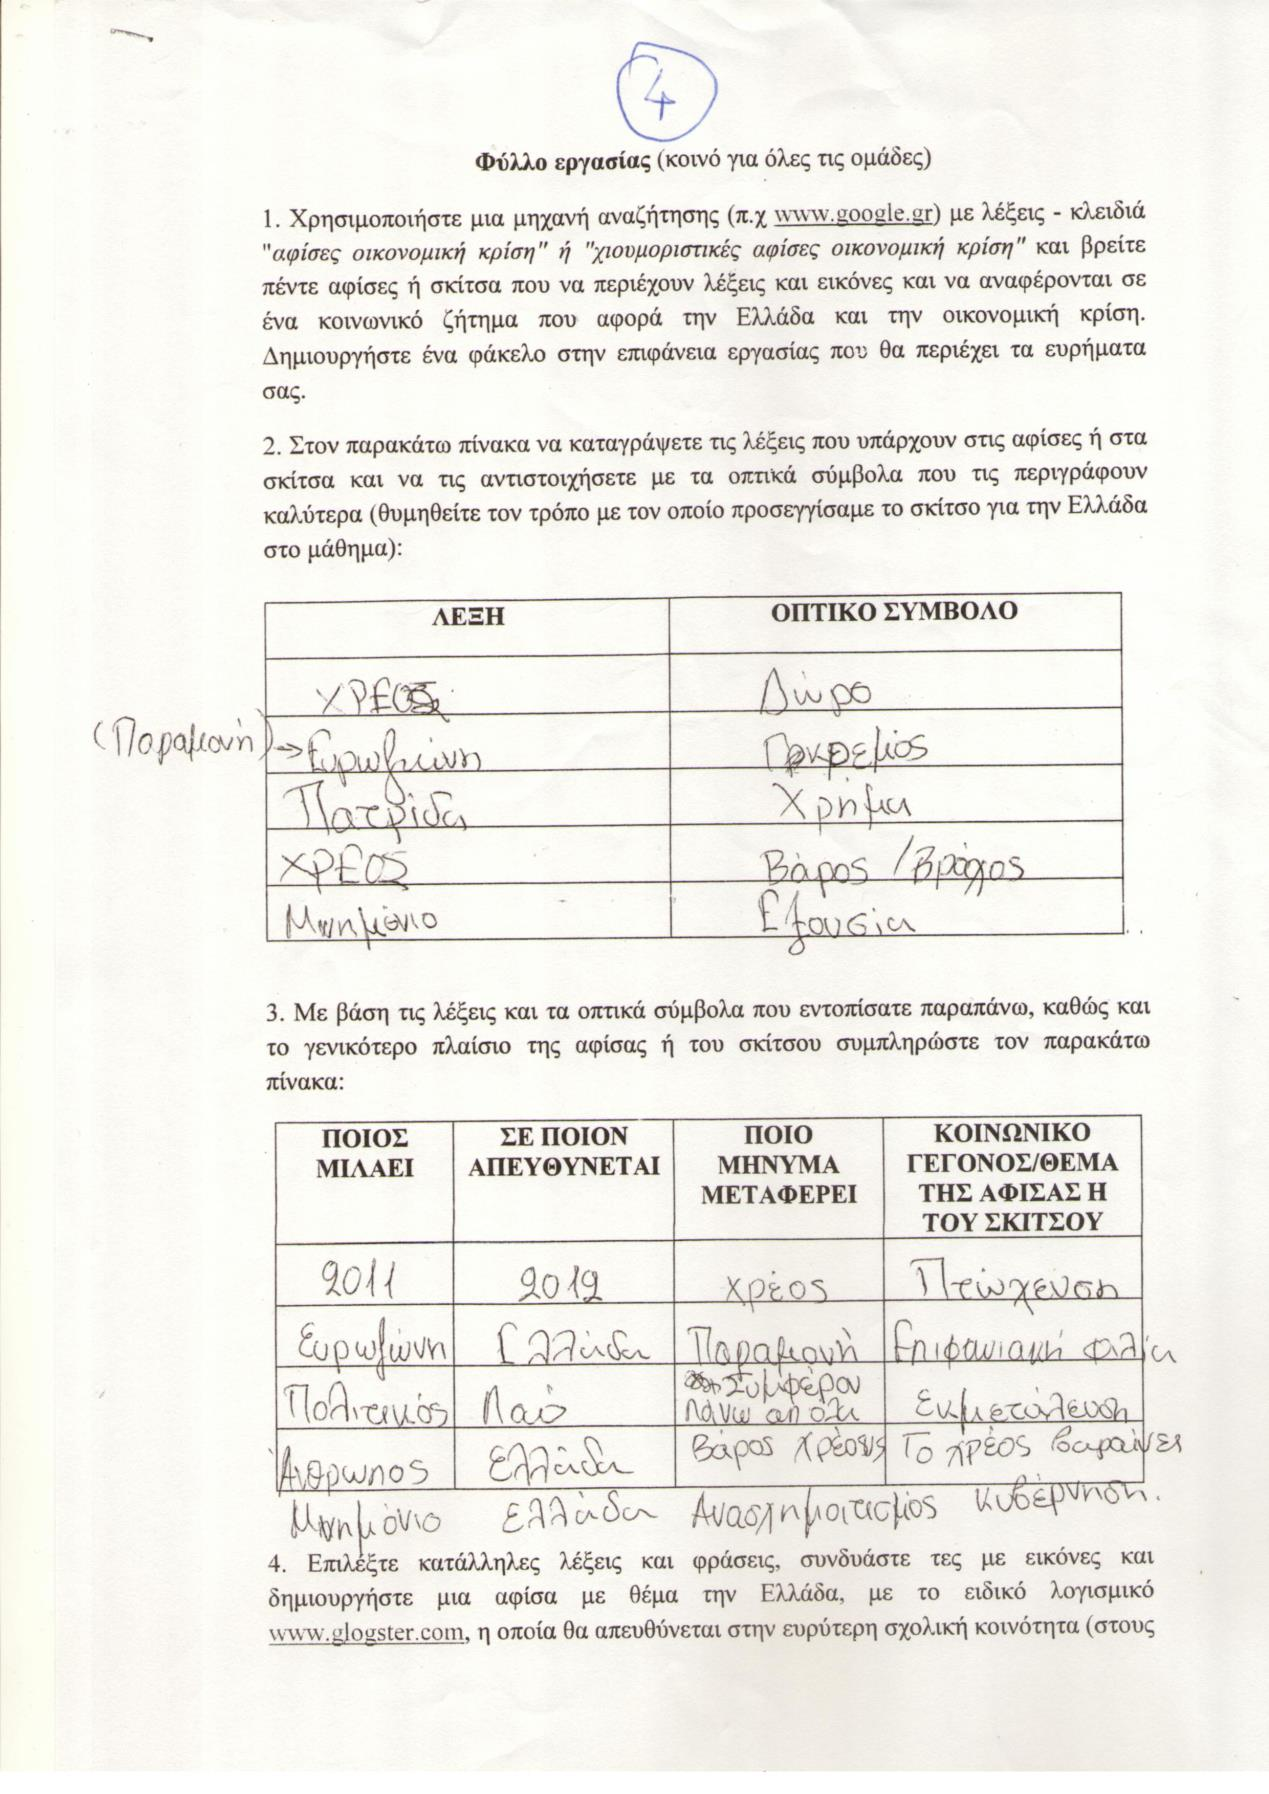 4
Φύλλο εργασίας (κοινό για όλες τις ομάδες)
1. Χρησιμοποιήστε μια μηχανή αναζήτησης (π.χ www.google.gr) με λέξεις - κλειδιά
"αφίσες οικονομική κρίση" ή "χιουμοριστικές αφίσες οικονομική κρίση" και βρείτε
πέντε αφίσες ή σκίτσα που να περιέχουν λέξεις και εικόνες και να αναφέρονται σε
ένα κοινωνικό ζήτημα που αφορά την Ελλάδα και την οικονομική κρίση.
Δημιουργήστε ένα φάκελο στην επιφάνεια εργασίας που θα περιέχει τα ευρήματα
σας.
2. Στον παρακάτω πίνακα να καταγράψετε τις λέξεις που υπάρχουν στις αφίσες ή στα
σκίτσα και να τις αντιστοιχήσετε με τα οπτικά σύμβολα που τις περιγράφουν
καλύτερα (θυμηθείτε τον τρόπο με τον οποίο προσεγγίσαμε το σκίτσο για την Ελλάδα
στο μάθημα):
ΛΕΞΗ ΟΠΤΙΚΟ ΣΥΜΒΟΛΟ
ΧΡΕΟΣ Δώρο
(Παραμονή) → Ευρωζώνη Γκρεμός
Πατρίδα Χρήμα
ΧΡΕΟΣ Βάρος / Βράχος
Μνημόνιο Εξουσία
3. Με βάση τις λέξεις και τα οπτικά σύμβολα που εντοπίσατε παραπάνω, καθώς και
το γενικότερο πλαίσιο της αφίσας ή του σκίτσου συμπληρώστε τον παρακάτω
πίνακα:
ΠΟΙΟΣ ΜΙΛΑΕΙ ΣΕ ΠΟΙΟΝ ΑΠΕΥΘΥΝΕΤΑΙ ΠΟΙΟ ΜΗΝΥΜΑ ΜΕΤΑΦΕΡΕΙ ΚΟΙΝΩΝΙΚΟ ΓΕΓΟΝΟΣ/ΘΕΜΑ ΤΗΣ ΑΦΙΣΑΣ Η ΤΟΥ ΣΚΙΤΣΟΥ
2011 2012 χρέος Πτώχευση
Ευρωζώνη Ελλάδα Παραμονή Επιφανιακή φιλία
Πολιτικός Λαό Συμφέρον πάνω απ' όλα Εκμετάλευση
Άνθρωπος Ελλάδα Βάρος χρέους Το χρέος βαραίνει
Μνημόνιο Ελλάδα Ανασχηματισμός κυβέρνηση.
4. Επιλέξτε κατάλληλες λέξεις και φράσεις, συνδυάστε τες με εικόνες και
δημιουργήστε μια αφίσα με θέμα την Ελλάδα, με το ειδικό λογισμικό
www.glogster.com, η οποία θα απευθύνεται στην ευρύτερη σχολική κοινότητα (στους